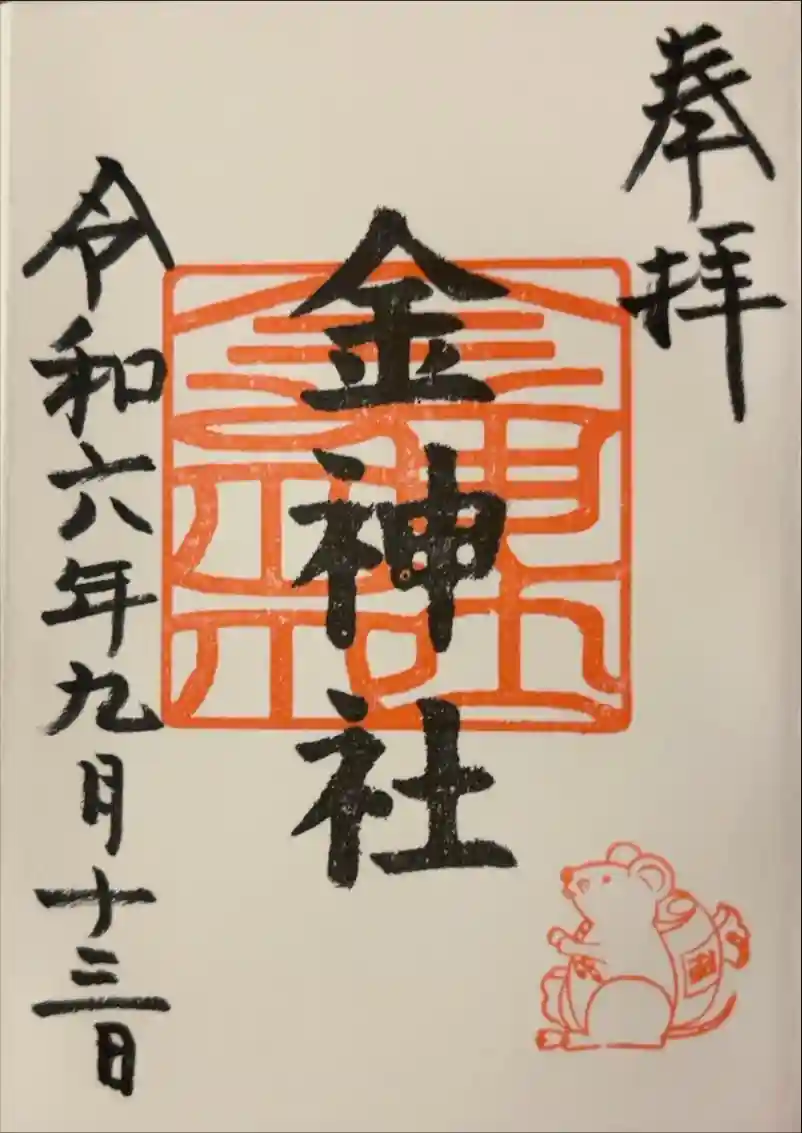 奉拝
金神社
令和六年九月十三日